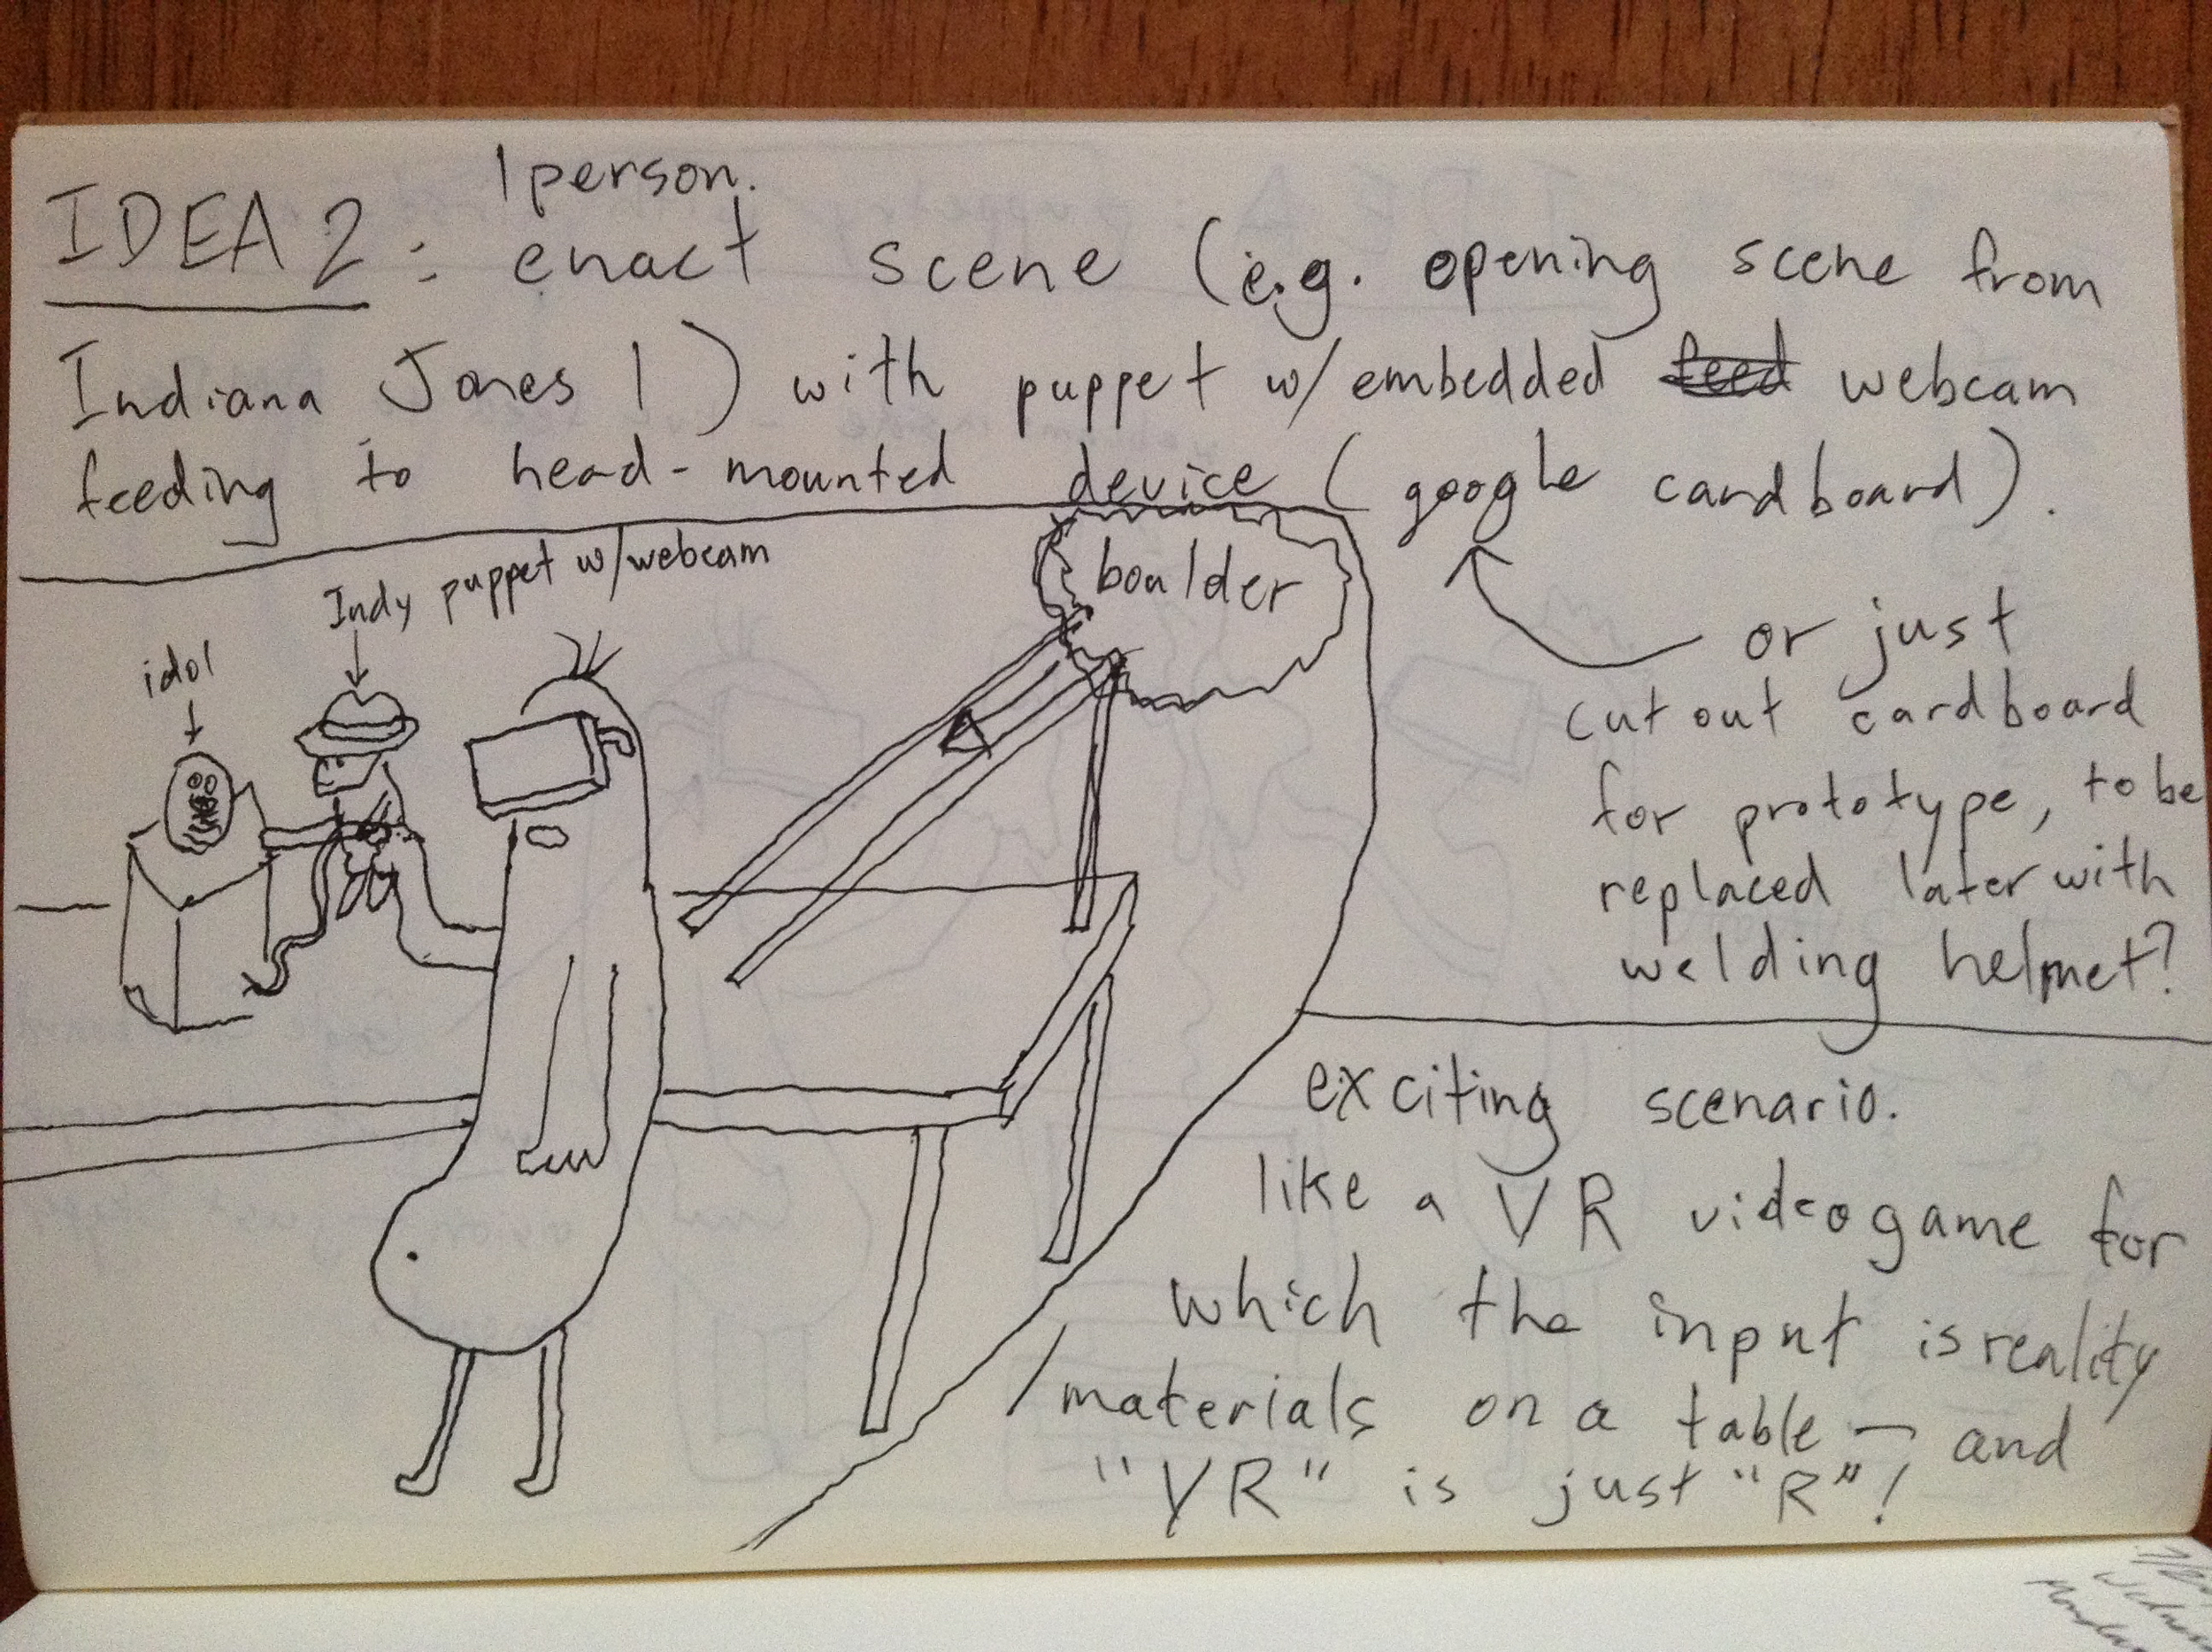 1 person.
IDEA 2: enact scene (e.g. opening scene from
Indiana Jones 1) with puppet w/embedded feed webcam
feeding to head-mounted device (google cardboard).
Indy puppet w/webcam
idol
boulder
or just
cut out cardboard
for prototype, to be
replaced later with
welding helmet?
exciting scenario.
like a VR videogame for
which the input is reality
/materials on a table — and
"VR" is just "R"!